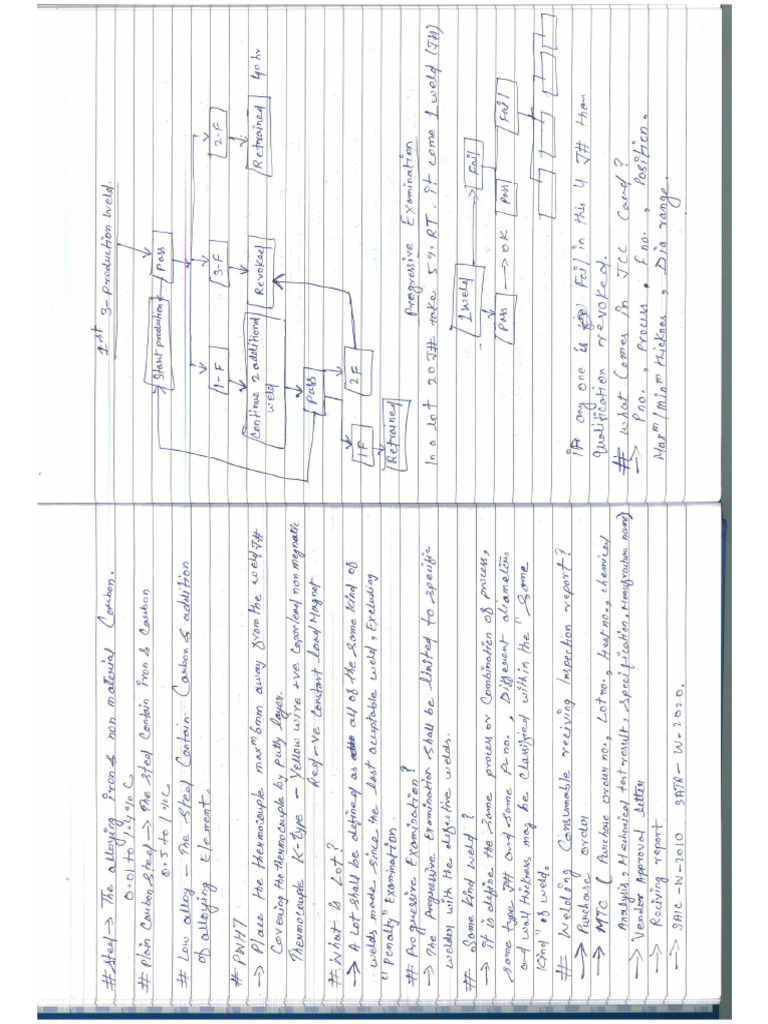 # Steel → The alloying iron & non material Carbon.
0.01 to 1.4 % C
# Plain Carbon Steel → The steel Contain iron & Carbon
0.5 to 1 % C
# Low alloy - The Steel Contain Carbon & addition
of alloying Element.
# PWHT
→ Place the thermocouple maxᵐ 6mm away from the weld J#
Covering the thermocouple by putty layer.
Thermocouple K-Type - Yellow wire +ve
Red -ve Constant lead Magnet
# What is Lot?
→ A Lot shall be defined as all of the same kind of
welds made since the last acceptable weld, Excluding
"Penalty" Examination
# Progressive Examination?
→ The progressive Examination shall be limited to specific
welders with the defective welds.
# Same Kind weld?
→ it is define the same process or Combination of process,
same type J# and same P.no., Different diameters
and wall thickness may be classified within the "Same
Kind" of weld.
# Welding Consumable reciving Inspection report?
→ Purchase order
→ MTC ( Purchase order no., Lot no., Heat no., chemical
Analysis, Mechanical test result, Specification, name)
→ Vendor Approval Letter
→ Reciving report
→ SAIC - W - 2010 SATR - W - 2020.
1st 3-Production Weld.
Start production
Pass
1-F
3-F
2-F
Continue 2 additional
weld
Revoked
Retrained
40 hr
Pass
1F
2F
Retrained
Progressive Examination
In a lot 20 J# take 5% RT. it come 1 weld (J#)
1 Weld
Fail
Pass → OK
Pass
Fail
if any one is Fail in this 4 J# then
Qualification revoked.
# What Comes in JCC Card?
→ P no., Process, F no., Position,
Maxᵐ/Minᵐ thicknes, Dia range.